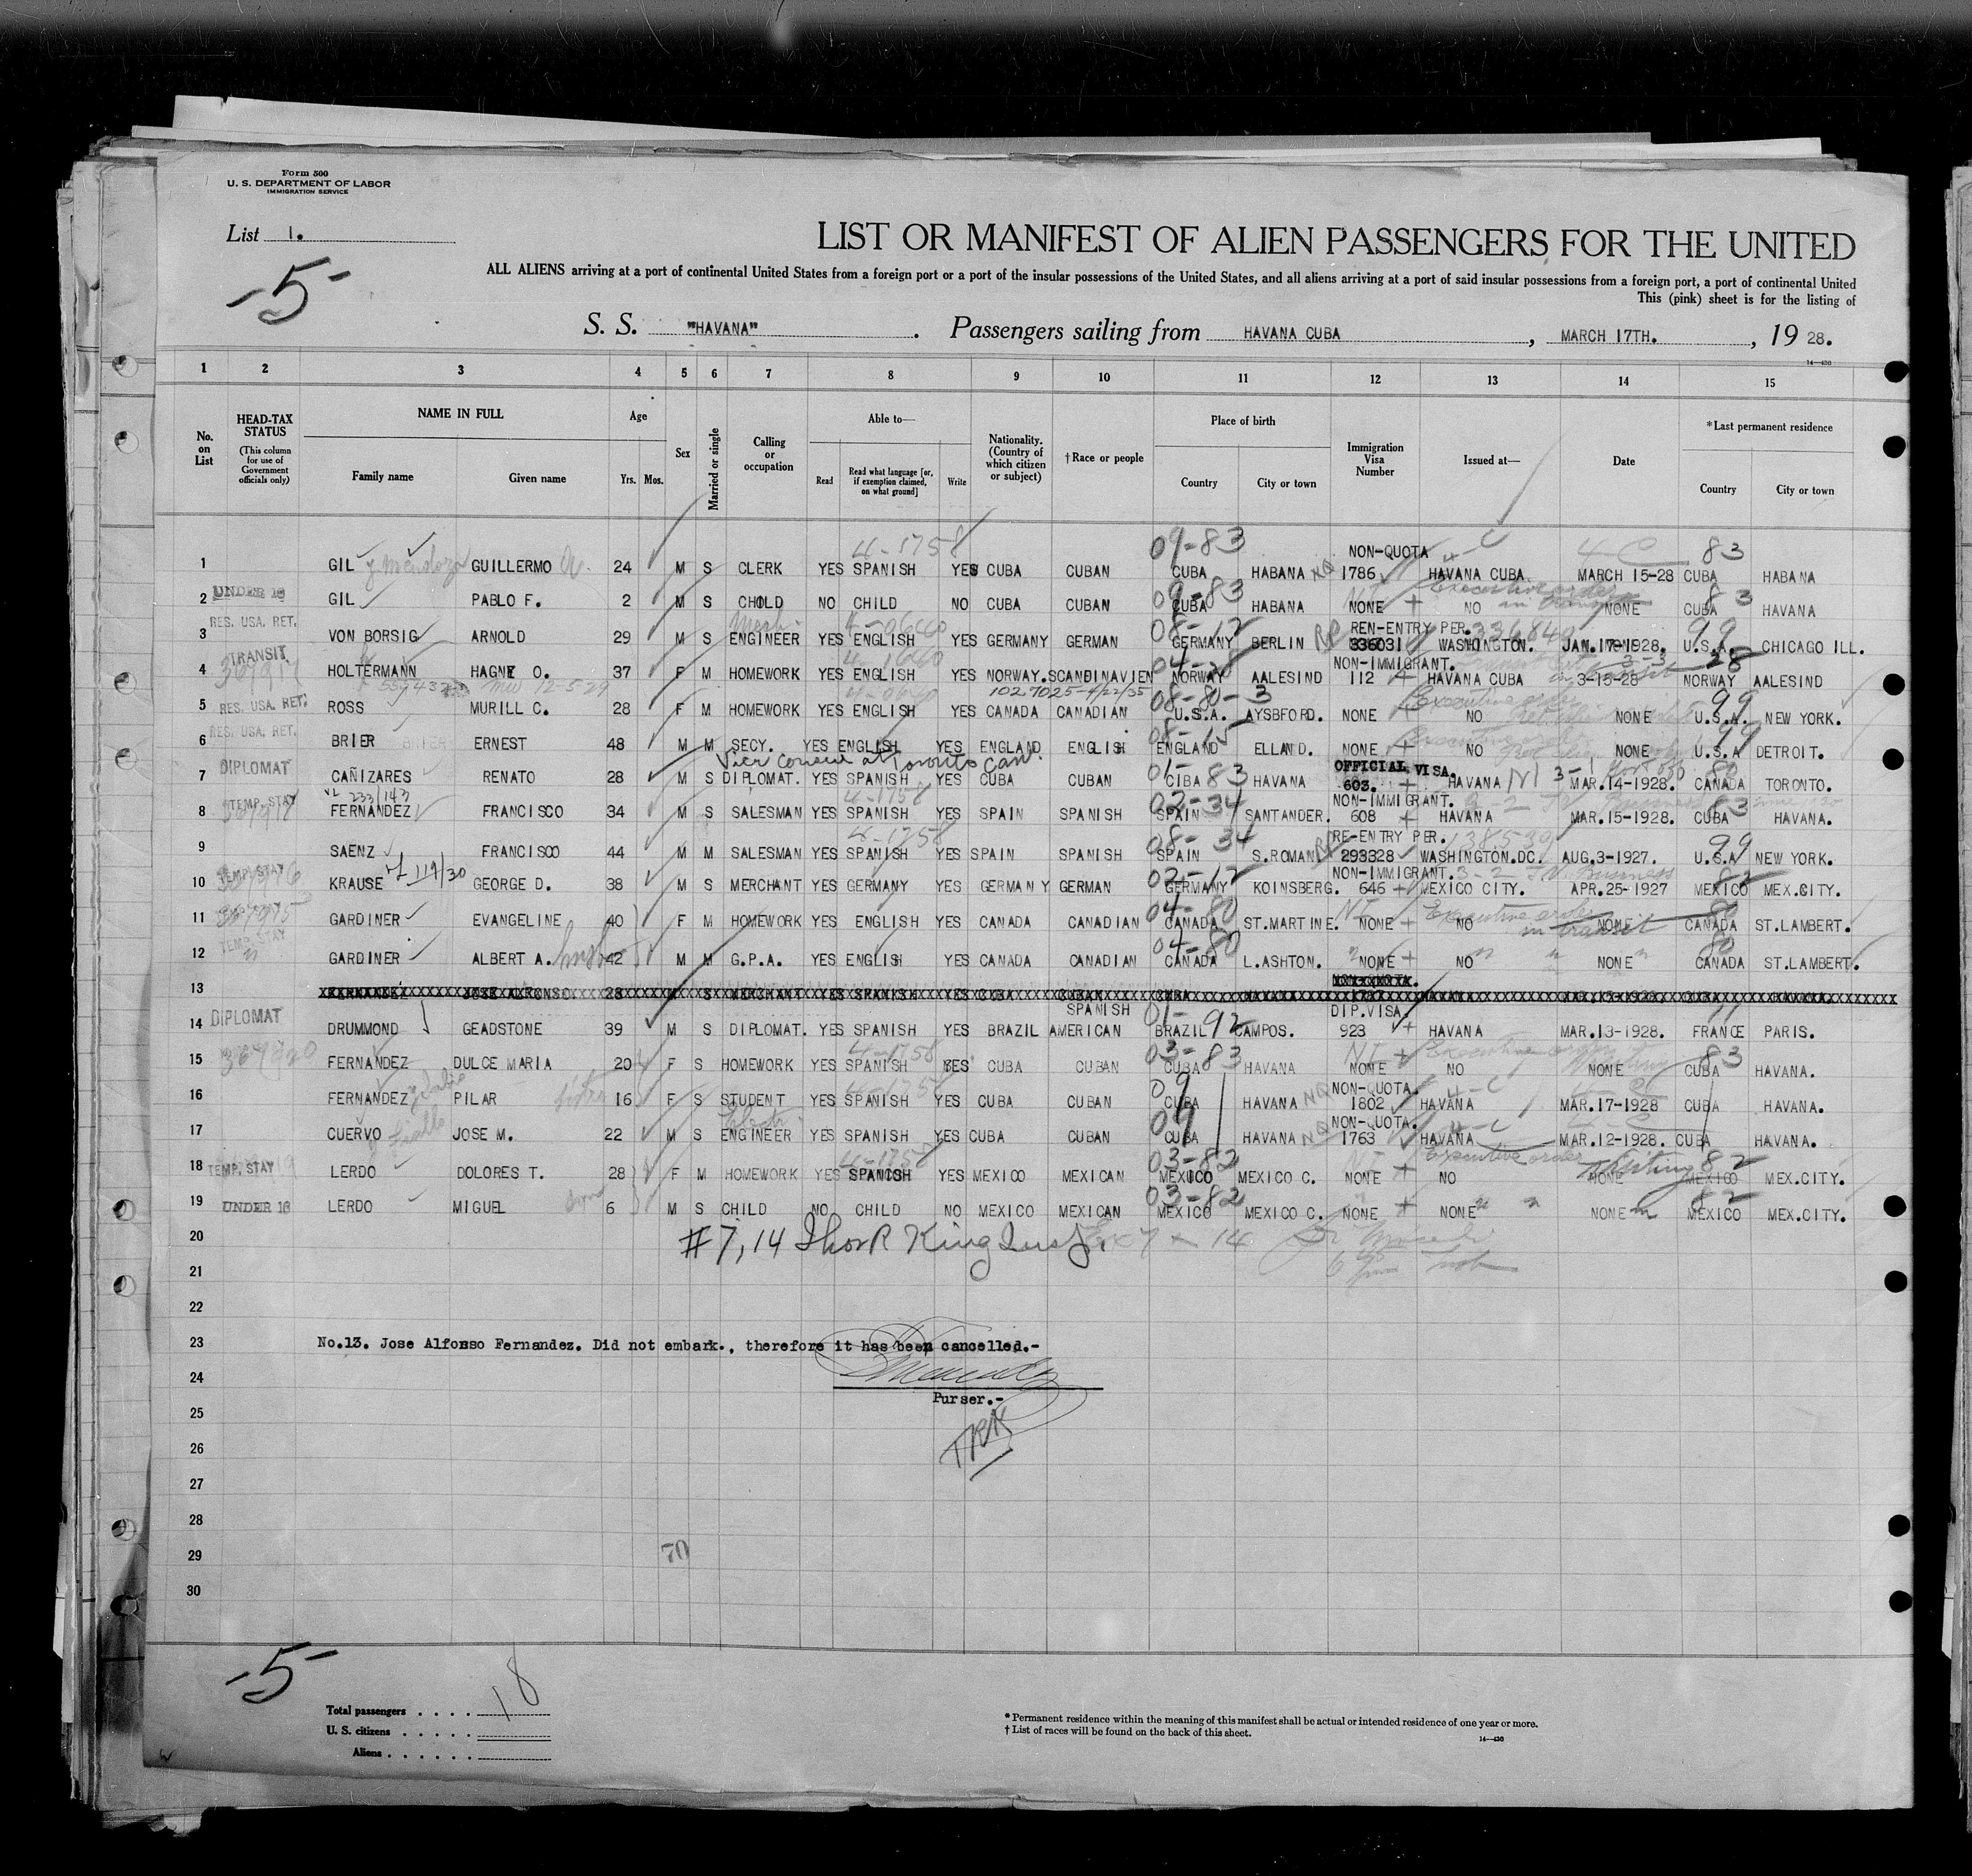 Form 500
U. S. DEPARTMENT OF LABOR
IMMIGRATION SERVICE
List 1.
-5-
LIST OR MANIFEST OF ALIEN PASSENGERS FOR THE UNITED
ALL ALIENS arriving at a port of continental United States from a foreign port or a port of the insular possessions of the United States, and all aliens arriving at a port of said insular possessions from a foreign port, a port of continental United
This (pink) sheet is for the listing of
S. S. "HAVANA". Passengers sailing from HAVANA CUBA, MARCH 17TH., 19 28.
14—430
1 2 3 4 5 6 7 8 9 10 11 12 13 14 15
No. on List HEAD-TAX STATUS (This column for use of Government officials only) NAME IN FULL Family name Given name Age Yrs. Mos. Sex Married or single Calling or occupation Able to— Read Read what language [or, if exemption claimed, on what ground] Write Nationality. (Country of which citizen or subject) †Race or people Place of birth Country City or town Immigration Visa Number Issued at— Date *Last permanent residence Country City or town
4-1758 09-83 NON-QUOTA 4-C 4-C 83
1 GIL y Mendoza GUILLERMO 24 M S CLERK YES SPANISH YES CUBA CUBAN CUBA HABANA NQ 1786 HAVANA CUBA MARCH 15-28 CUBA HABANA
UNDER 16 09-83 Executive order in transit 83
2 GIL PABLO F. 2 M S CHOLD NO CHILD NO CUBA CUBAN CUBA HABANA NONE + NO NONE CUBA HAVANA
RES. USA. RET. Mech. 08-12 REN-ENTRY PER. 336840 99
3 VON BORSIG ARNOLD 29 M S ENGINEER YES ENGLISH YES GERMANY GERMAN GERMANY BERLIN RP 336031 WASHINGTON. JAN.1928. U.S.A. CHICAGO ILL.
TRANSIT 04-28 NON-IMMIGRANT. 3-3 28
4 HOLTERMANN HAGNY O. 37 F M HOMEWORK YES ENGLISH YES NORWAY. SCANDINAVIEN NORWAY AALESIND 112 + HAVANA CUBA 3-15-28 NORWAY AALESIND
1027025-4/22/35 08-80-3 Executive order 99
5 RES. USA. RET. ROSS MURILL C. 28 F M HOMEWORK YES ENGLISH YES CANADA CANADIAN U.S.A. AYSBFORD. NONE + NO NONE U.S.A. NEW YORK.
RES. USA. RET. 08-15 Executive order 99
6 BRIER ERNEST 48 M M SECY. YES ENGLISH YES ENGLAND ENGLISH ENGLAND ELLAND. NONE + NO NONE U.S.A DETROIT.
Vice Consul at Toronto Can. 01-83 OFFICIAL VISA. NI 3-1 80
7 DIPLOMAT CAÑIZARES RENATO 28 M S DIPLOMAT. YES SPANISH YES CUBA CUBAN CIBA HAVANA 603. + HAVANA MAR.14-1928. CANADA TORONTO.
TEMP. STAY VL 233/143 4-1758 02-34 NON-IMMIGRANT. 83
8 FERNANDEZ FRANCISCO 34 M S SALESMAN YES SPANISH YES SPAIN SPANISH SPAIN SANTANDER. 608 + HAVANA MAR.15-1928. CUBA HAVANA.
4-1758 08-34 RE-ENTRY PER. 99
9 SAENZ FRANCISCO 44 M M SALESMAN YES SPANISH YES SPAIN SPANISH SPAIN S.ROMAN RP 293328 WASHINGTON.DC. AUG.3-1927. U.S.A NEW YORK.
TEMP. STAY VL 119/30 02-12 NON-IMMIGRANT. 3-2 T.V. Business 82
10 KRAUSE GEORGE D. 38 M S MERCHANT YES GERMANY YES GERMANY GERMAN GERMANY KOINSBERG. 646 + MEXICO CITY. APR.25-1927 MEXICO MEX.CITY.
04-80 Executive order in transit 80
11 GARDINER EVANGELINE 40 F M HOMEWORK YES ENGLISH YES CANADA CANADIAN CANADA ST.MARTINE. NONE + NO NONE CANADA ST.LAMBERT.
TEMP. STAY 04-80 80
12 GARDINER ALBERT A. 42 M M G.P.A. YES ENGLISH YES CANADA CANADIAN CANADA L.ASHTON. NONE + NO NONE CANADA ST.LAMBERT.
NON-QUOTA.
13 FERNANDEZ JOSE ALFONSO. 28 M S MERCHANT YES SPANISH YES CUBA CUBAN CUBA HAVANA HAVANA CUBA HAVANA.
DIPLOMAT SPANISH 01-92 DIP.VISA. 11
14 DRUMMOND GEADSTONE 39 M S DIPLOMAT. YES SPANISH YES BRAZIL AMERICAN BRAZIL CAMPOS. 923 + HAVANA MAR.13-1928. FRANCE PARIS.
4-1758 03-83 NI Executive order Visiting 83
15 FERNANDEZ DULCE MARIA 20 F S HOMEWORK YES SPANISH YES CUBA CUBAN CUBA HAVANA NONE NO NONE CUBA HAVANA.
4-1758 09 NON-QUOTA. 4-C
16 FERNANDEZ PILAR 16 F S STUDENT YES SPANISH YES CUBA CUBAN CUBA HAVANA NQ 1802 HAVANA MAR.17-1928 CUBA HAVANA.
09 NON-QUOTA. 4-C
17 CUERVO JOSE M. 22 M S ENGINEER YES SPANISH YES CUBA CUBAN CUBA HAVANA NQ 1763 HAVANA MAR.12-1928. CUBA HAVANA.
TEMP. STAY 4-1758 03-82 Executive order Visiting 82
18 LERDO DOLORES T. 28 F M HOMEWORK YES SPANISH YES MEXICO MEXICAN MEXICO MEXICO C. NONE + NO NONE MEXICO MEX.CITY.
03-82 82
19 UNDER 16 LERDO MIGUEL 6 M S CHILD NO CHILD NO MEXICO MEXICAN MEXICO MEXICO C. NONE + NONE NONE MEXICO MEX.CITY.
20 #7, 14 Thos R King Insp.
21
22
23 No.13. Jose Alfonso Fernandez. Did not embark., therefore it has been cancelled.-
24
Purser.-
25
TRK
26
27
28
29 70
30
-5-
Total passengers . . . . 18
U. S. citizens . . . . .
Aliens . . . . . .
* Permanent residence within the meaning of this manifest shall be actual or intended residence of one year or more.
† List of races will be found on the back of this sheet.
14—430